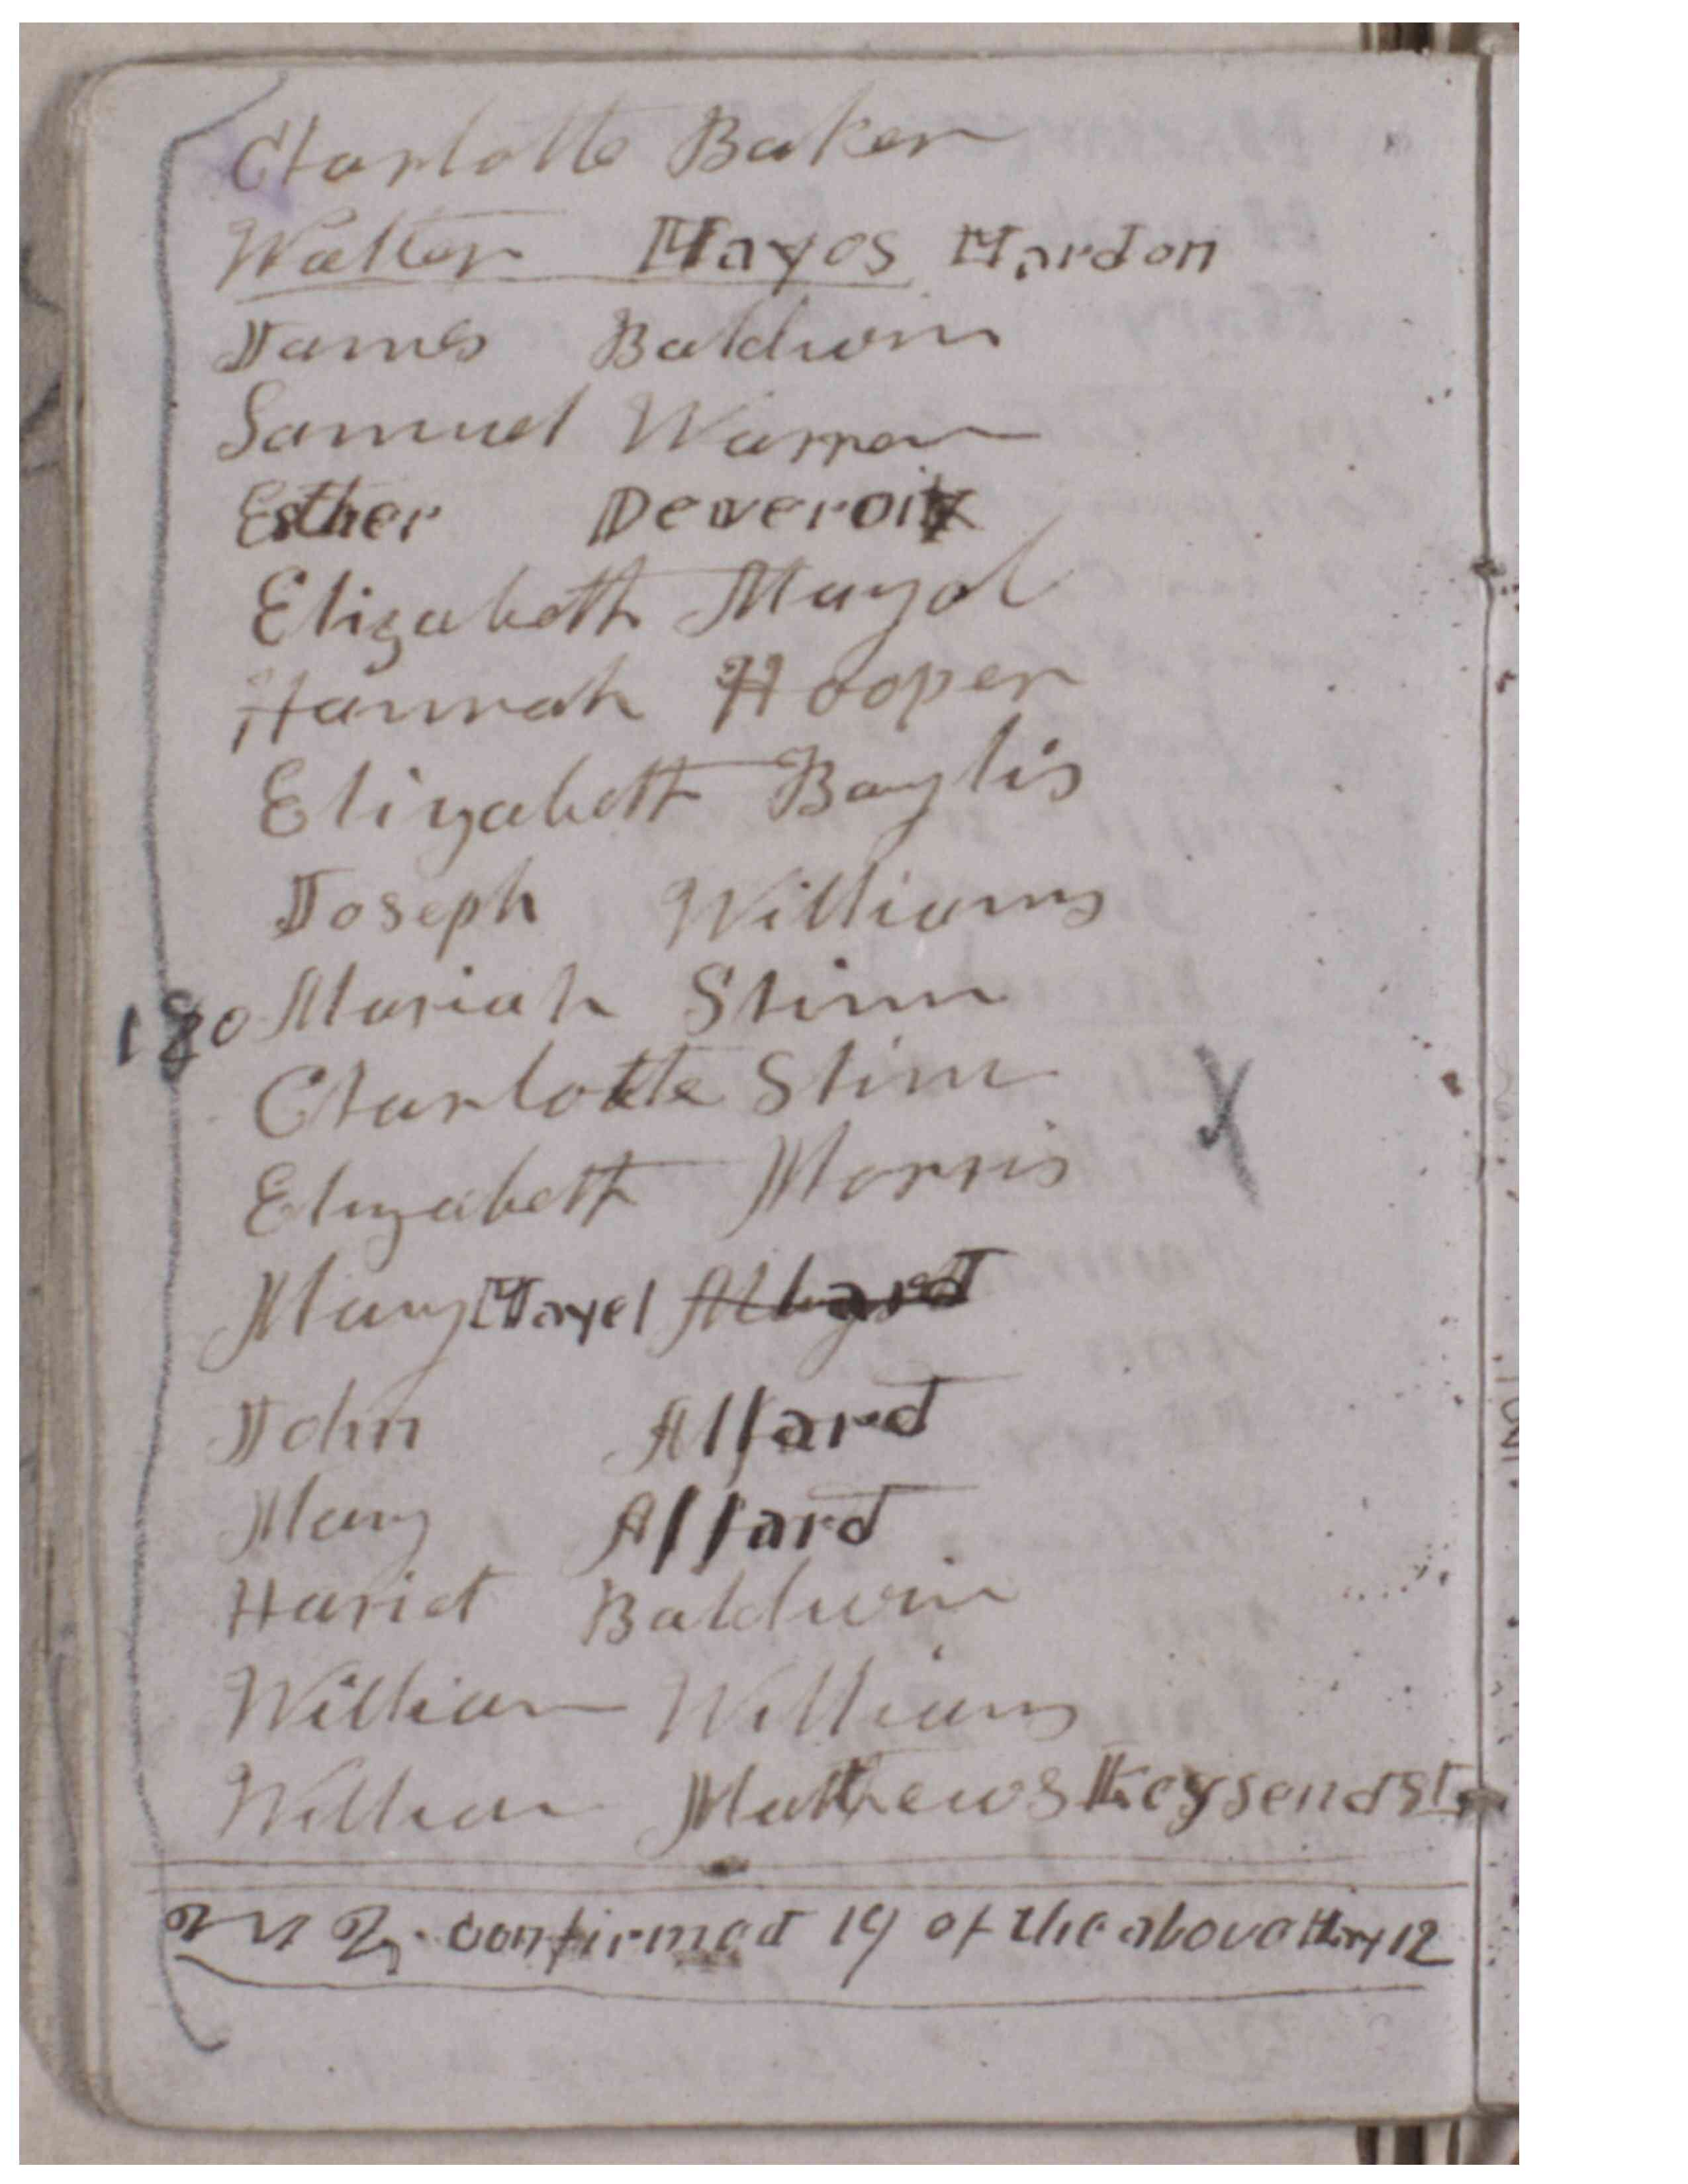 Charlotte Baker
Walter Hayes Hardon
James Baldwin
Samuel Warren
Esther Deveroix
Elizabeth Mayol
Hannah Hooper
Elizabeth Baylis
Joseph Williams
180 Mariah Stinn
Charlotte Stinn
Elizabeth Morris
Mary Mayel
John Alfard
Mary Alfard
Hariet Baldwin
William Williams
William Mathews Keysend St
confirmed 19 of the above May 12